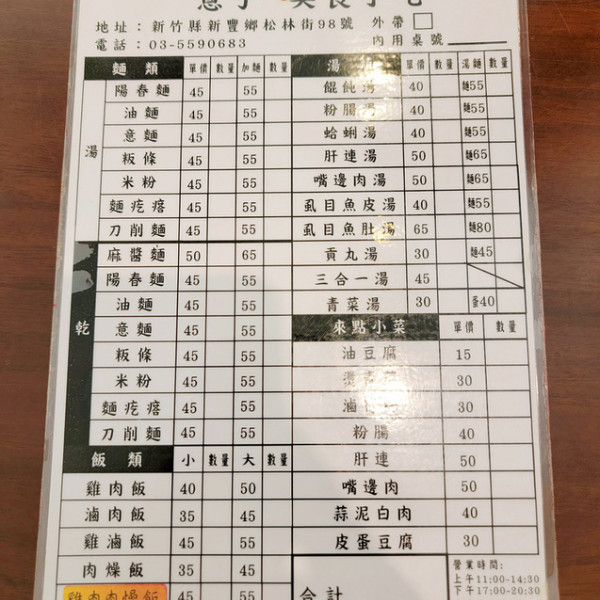 地址：新竹縣新豐鄉松林街98號 外帶
電話：03-5590683 內用桌號
麵類 單價 數量 加麵 數量
湯
陽春麵 45 55
油麵 45 55
意麵 45 55
粄條 45 55
米粉 45 55
麵疙瘩 45 55
刀削麵 45 55
乾
麻醬麵 50 65
陽春麵 45 55
油麵 45 55
意麵 45 55
粄條 45 55
米粉 45 55
麵疙瘩 45 55
刀削麵 45 55
飯類 小 數量 大 數量
雞肉飯 40 50
滷肉飯 35 45
雞滷飯 45 55
肉燥飯 35 45
雞肉肉燥飯 45 55
湯 單價 數量 湯麵 數量
餛飩湯 40 麵55
粉腸湯 40 麵55
蛤蜊湯 40 麵55
肝連湯 50 麵65
嘴邊肉湯 50 麵65
虱目魚皮湯 40 麵55
虱目魚肚湯 65 麵80
貢丸湯 30 麵45
三合一湯 45
青菜湯 30 蛋40
來點小菜 單價 數量
油豆腐 15
青菜 30
滷 30
粉腸 40
肝連 50
嘴邊肉 50
蒜泥白肉 40
皮蛋豆腐 30
合計
營業時間：
上午11:00-14:30
下午17:00-20:30